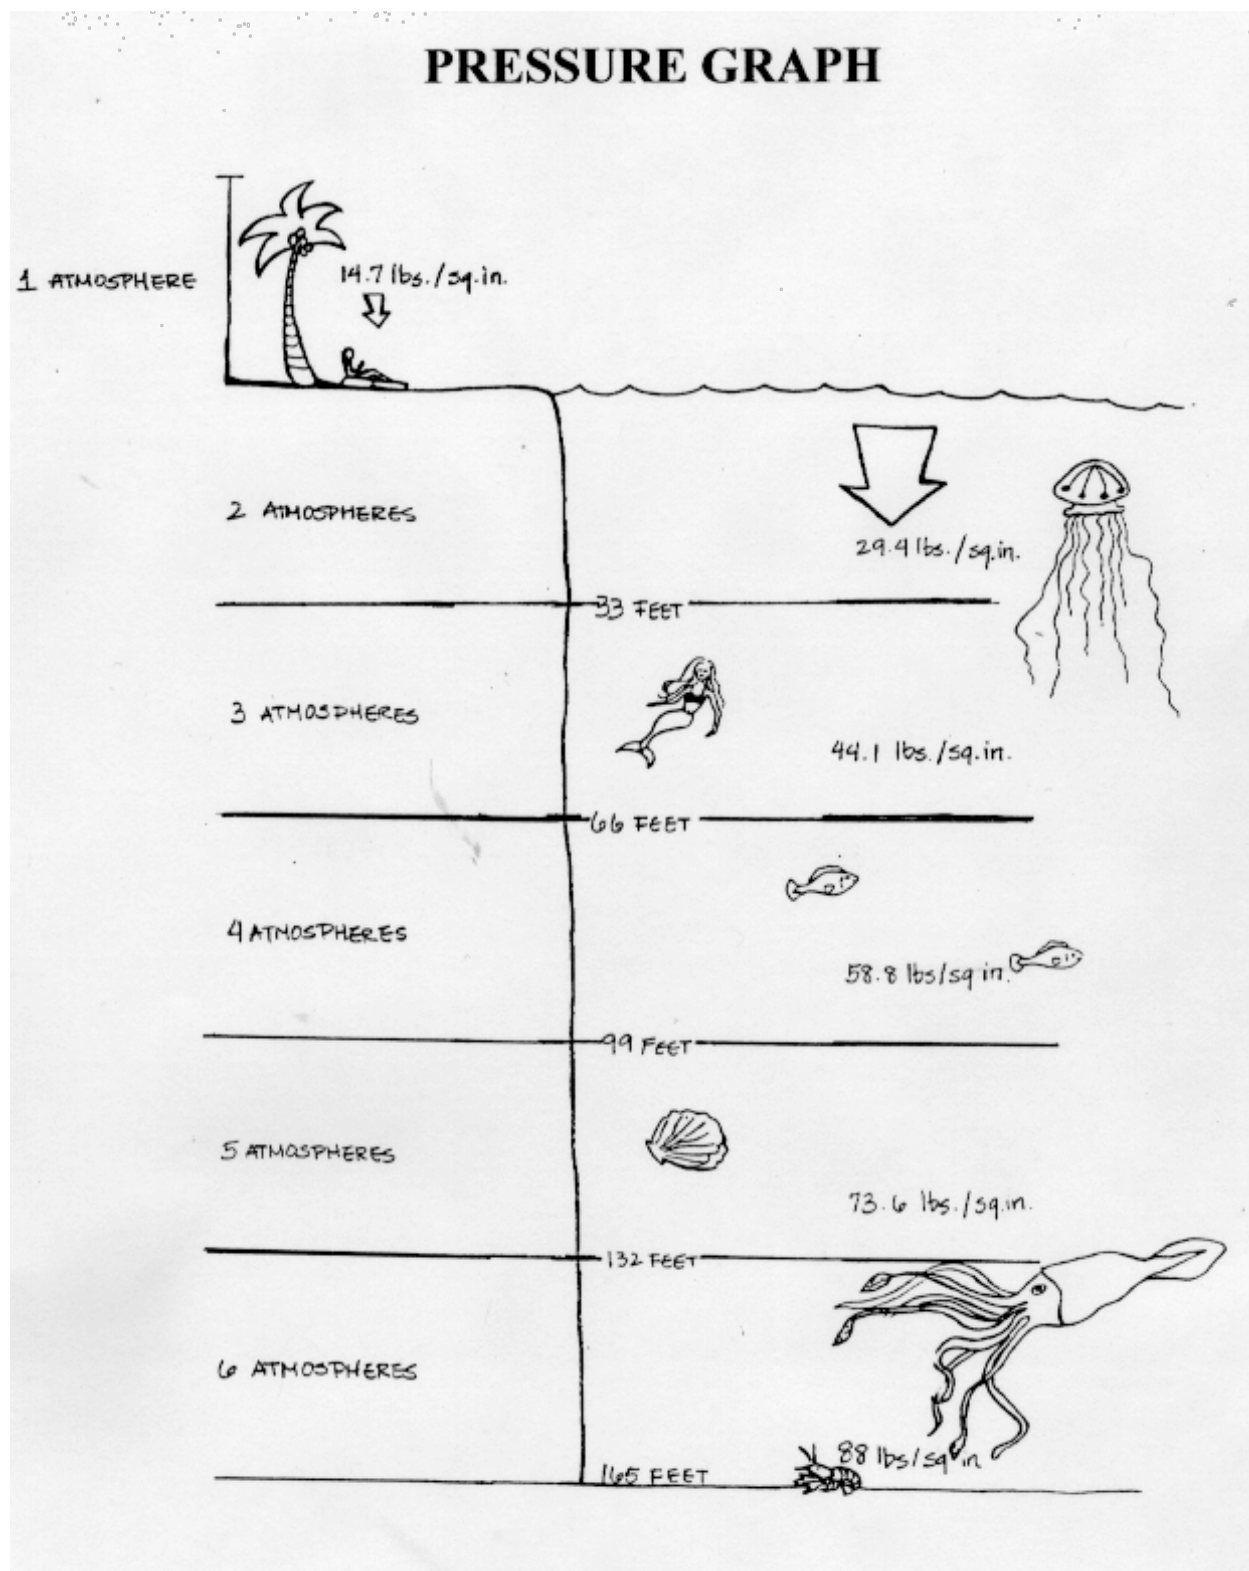 PRESSURE GRAPH
1 ATMOSPHERE
14.7 lbs./sq.in.
2 ATMOSPHERES
29.4 lbs./sq.in.
33 FEET
3 ATMOSPHERES
44.1 lbs./sq.in.
66 FEET
4 ATMOSPHERES
58.8 lbs/sq in.
99 FEET
5 ATMOSPHERES
73.6 lbs./sq.in.
132 FEET
6 ATMOSPHERES
88 lbs/sq in
165 FEET